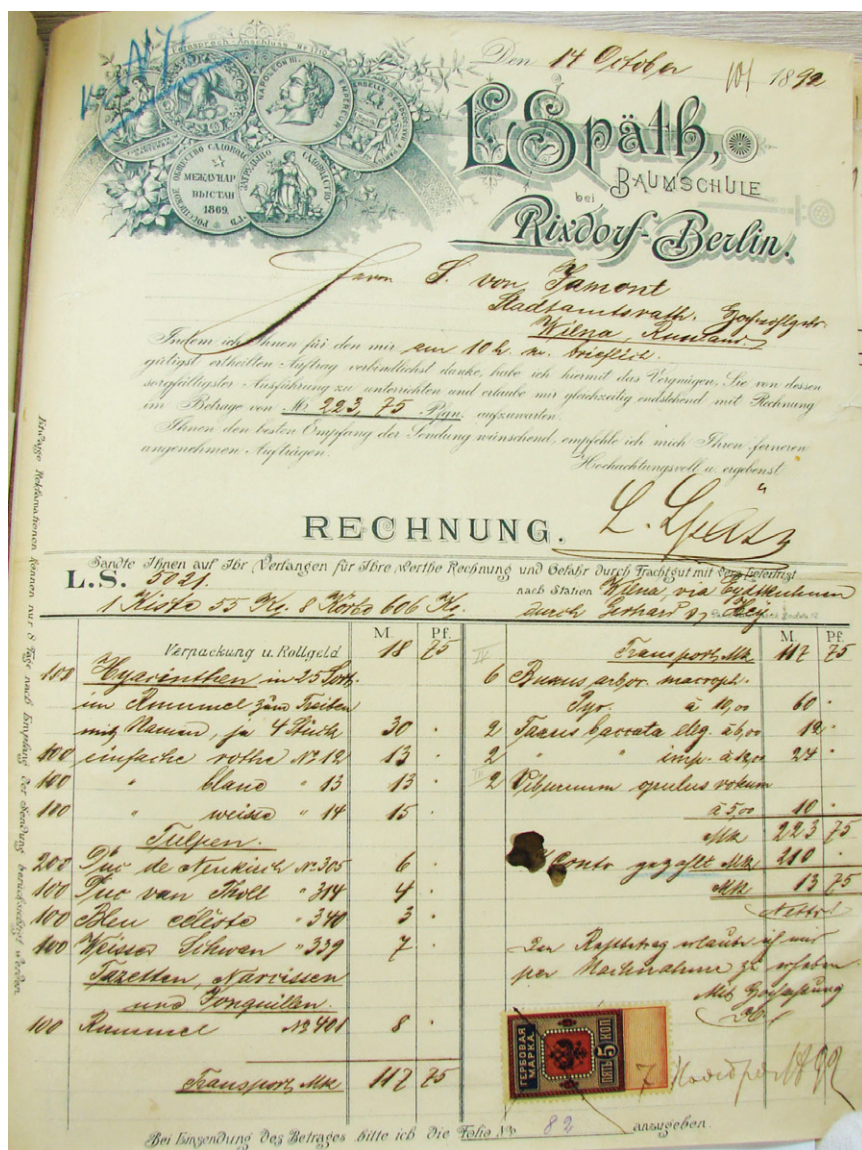 Fernsprech-Anschluss No 2710
Den 14 October 1892
NAPOLEON III. EMPEREUR
МЕЖДУНАР.
ВЫСТАВ.
1869.
L. Späth,
BAUMSCHULE
bei
Rixdorf-Berlin.
Herrn S. von Jamont
Stadtamtsrath. Hochwohlgebr.
Wilna, Russland.
Indem ich Ihnen für den mir am 10 h. m. brieflich
gütigst ertheilten Auftrag verbindlichst danke, habe ich hiermit das Vergnügen, Sie von dessen
sorgfältigster Ausführung zu unterrichten und erlaube mir gleichzeitig endstehend mit Rechnung
im Betrage von Mk 223,75 Pfgn. aufzuwarten.
Ihnen den besten Empfang der Sendung wünschend, empfehle ich mich Ihren ferneren
angenehmen Aufträgen.
Hochachtungsvoll u. ergebenst
L. Späth
RECHNUNG.
Sandte Ihnen auf Ihr Verlangen für Ihre werthe Rechnung und Gefahr durch Frachtgut mit
L.S. 5021. nach Station Wilna, via Eydtkuhnen
1 Kiste 55 Kg. 8 Körbe 606 Kg. durch Gerhard & Hey
M. Pf.
Verpackung u. Rollgeld 18 75
100 Hyacinthen in 25 Sort.
im Rummel zum Treiben
mit Namen, je 4 Stück 30 .
100 einfache rothe No 12 13 .
100 " blaue " 13 13 .
100 " weisse " 14 15 .
Tulpen.
200 Duc de Neukirch No 305 6 .
100 Duc van Tholl " 314 4 .
100 Bleu céleste " 340 3 .
100 Weisser Schwan " 339 7 .
Tazetten, Narcissen
und Jonquillen.
100 Rummel No 401 8 .
Transport Mk 117 75
M. Pf.
Transport Mk 117 75
6 Buxus arbor. macroph.
Pyr. à 10,00 60 .
2 Taxus baccata eleg. à 6,00 12 .
2 " " imp. à 12,00 24 .
2 Viburnum opulus
à 5,00 10 .
Mk 223 75
Conto gezahlt Mk 210 .
Mk 13 75
Netto!
Den Restbetrag erlaube ich mir
per Nachnahme zu erheben
Mit Hochachtung
ГЕРБОВАЯ
МАРКА.
ПЯТЬ 5 КОП
7 Ноября 1892
Etwaige Reklamationen können nur 8 Tage nach Empfang der Sendung berücksichtigt werden.
Bei Einsendung des Betrages bitte ich die Folio No 82 anzugeben.